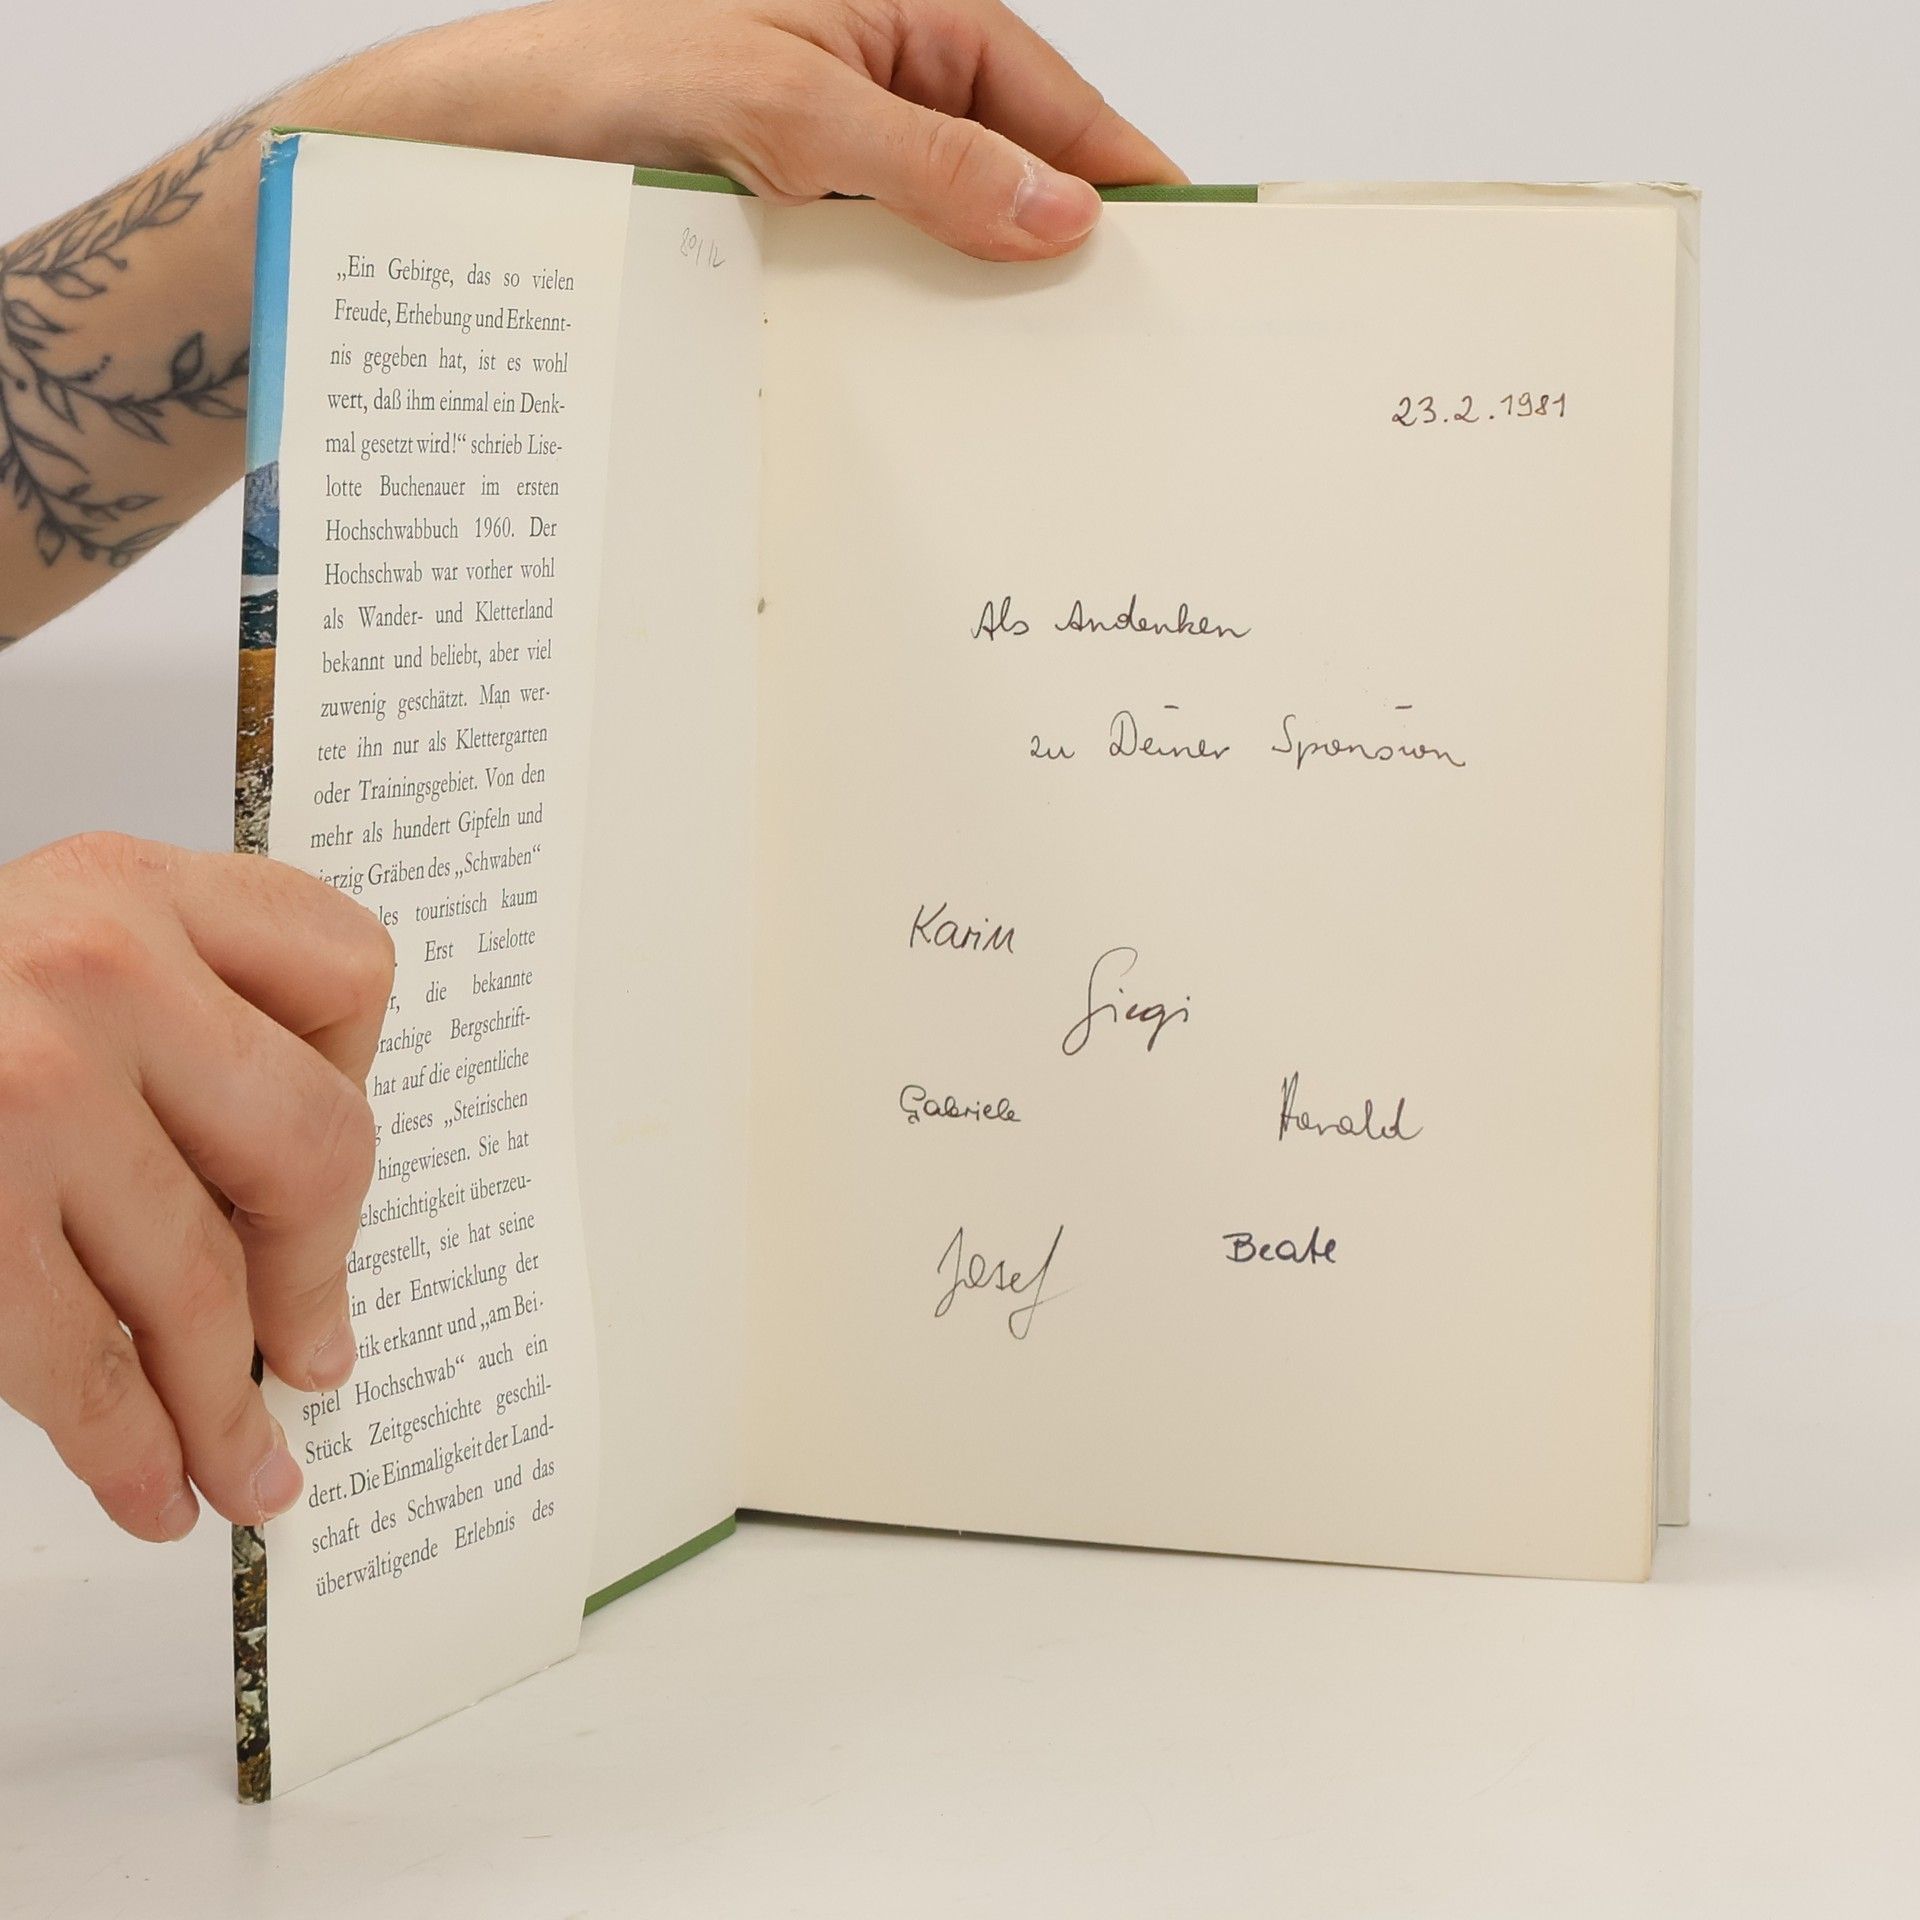 „Ein Gebirge, das so vielen
Freude, Erhebung und Erkennt-
nis gegeben hat, ist es wohl
wert, daß ihm einmal ein Denk-
mal gesetzt wird!“ schrieb Lise-
lotte Buchenauer im ersten
Hochschwabbuch 1960. Der
Hochschwab war vorher wohl
als Wander- und Kletterland
bekannt und beliebt, aber viel
zuwenig geschätzt. Man wer-
tete ihn nur als Klettergarten
oder Trainingsgebiet. Von den
mehr als hundert Gipfeln und
ierzig Gräben des „Schwaben“
les touristisch kaum
. Erst Liselotte
r, die bekannte
rachige Bergschrift-
hat auf die eigentliche
g dieses „Steirischen
hingewiesen. Sie hat
elschichtigkeit überzeu-
dargestellt, sie hat seine
in der Entwicklung der
stik erkannt und „am Bei-
spiel Hochschwab“ auch ein
Stück Zeitgeschichte geschil-
dert. Die Einmaligkeit der Land-
schaft des Schwaben und das
überwältigende Erlebnis des
80/12
23.2.1981
Als Andenken
zu Deiner Sponsion
Karin
Siegi
Gabriele Harald
Josef Beate